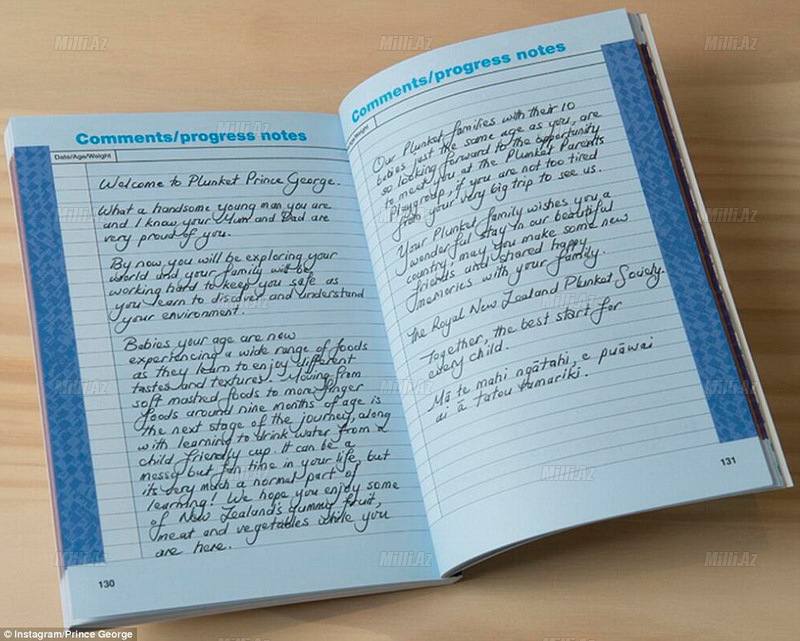 Comments/progress notes
Date/Age/Weight
Welcome to Plunket Prince George.
What a handsome young man you are
and I know your Mum and Dad are
very proud of you.
By now you will be exploring your
world and your family will be
working hard to keep you safe as
you learn to discover and understand
your environment.
Babies your age are now
experiencing a wide range of foods
as they learn to enjoy different
tastes and textures. Moving from
soft mashed foods to more finger
foods around nine months of age is
the next stage of the journey, along
with learning to drink water from a
child friendly cup. It can be a
messy but fun time in your life, but
its very much a normal part of
learning! We hope you enjoy some
of New Zealand's yummy fruit,
meat and vegetables while you
are here.
130
Comments/progress notes
Age/Weight
Our Plunket families with their 10
babies just the same age as you, are
so looking forward to the opportunity
to meet you at the Plunket Parents
Playgroup, if you are not too tired
from your very big trip to see us.
Your Plunket family wishes you a
wonderful stay in our beautiful
country, may you make some new
friends and shared happy
memories with your family.
The Royal New Zealand Plunket Society.
Together, the best start for
every child.
Mā te mahi ngātahi, e puāwai
ai ā tatou tamariki.
131
Milli.Az
© Instagram/Prince George